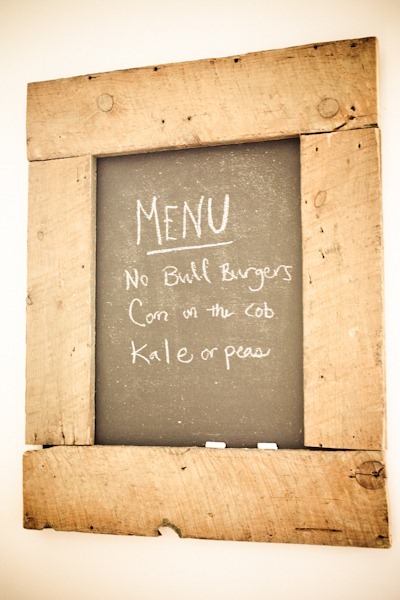 MENU
No Bull Burgers
Corn on the Cob
Kale or peas